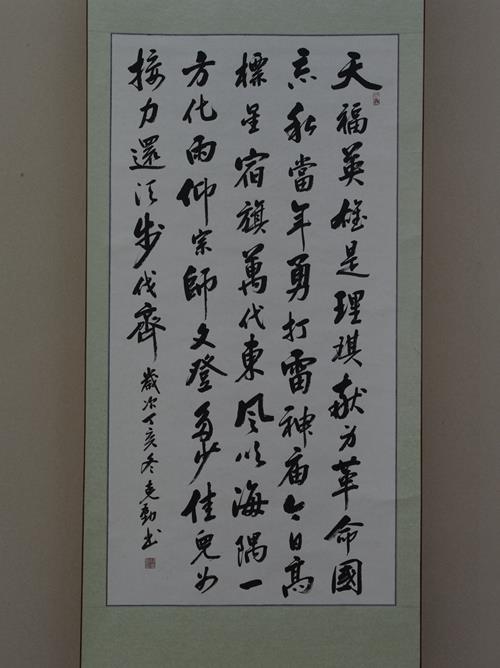 天福英雄是理琪献身革命國
忘私當年勇打雷神庙今日高
標星宿旗萬代東風吹海隅一
方化雨仰宗師文登多少佳兒女
接力還須步伐齊
歲次丁亥冬克书